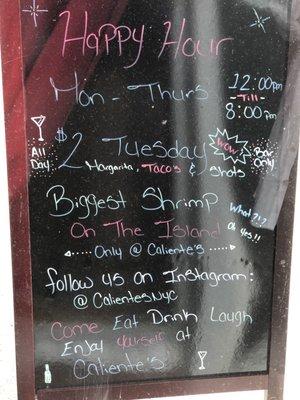 Happy Hour
Mon - Thurs 12:00pm
- Till -
8:00pm
All Day $2 Tuesday WOW Bar Only
Margarita, Taco's & Shots
Biggest Shrimp What?!?
On The Island oh yes!!
Only @ Caliente's
follow us on Instagram:
@CalientesNYC
Come Eat Drink Laugh
Enjoy yourself at
Caliente's